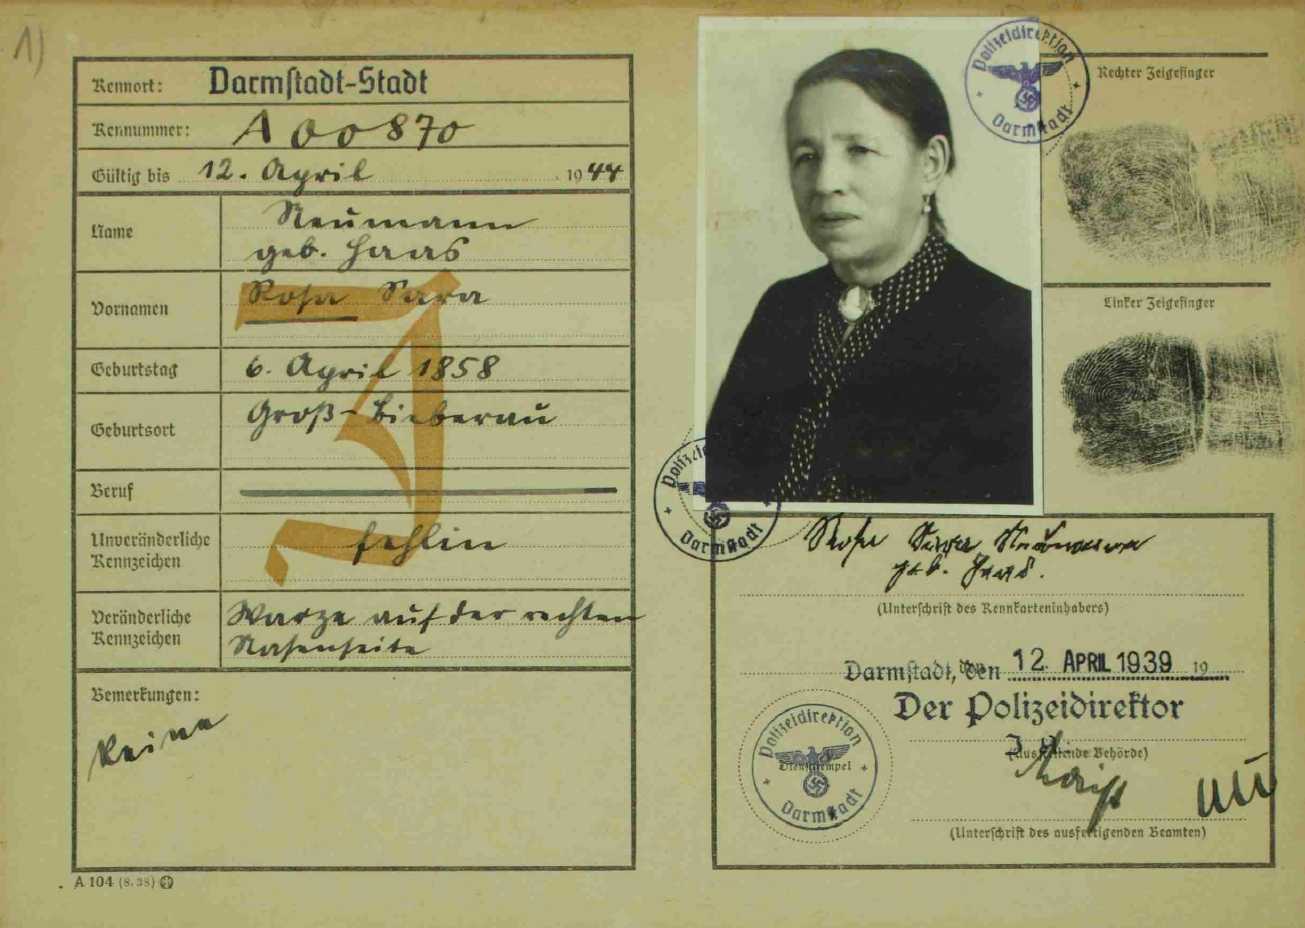 1)
Kennort: Darmstadt-Stadt
Kennummer: A 00870
Gültig bis 12. April 1944
Name Neumann
geb. Haas
Vornamen Rosa Sara
Geburtstag 6. April 1858
Geburtsort Groß-Bieberau
Beruf
J
Unveränderliche Kennzeichen fehlen
Veränderliche Kennzeichen Warze auf der rechten
Nasenseite
Bemerkungen:
Keine
A 104 (8. 38)
Polizeidirektion
Darmstadt
Rechter Zeigefinger
Linker Zeigefinger
Polizeidirektion
Darmstadt
Rosa Sara Neumann
geb. Haas.
(Unterschrift des Kennkarteninhabers)
Darmstadt, den 12. APRIL 1939 19
Der Polizeidirektor
(Ausstellende Behörde)
Polizeidirektion
Dienststempel
Darmstadt
(Unterschrift des ausfertigenden Beamten)